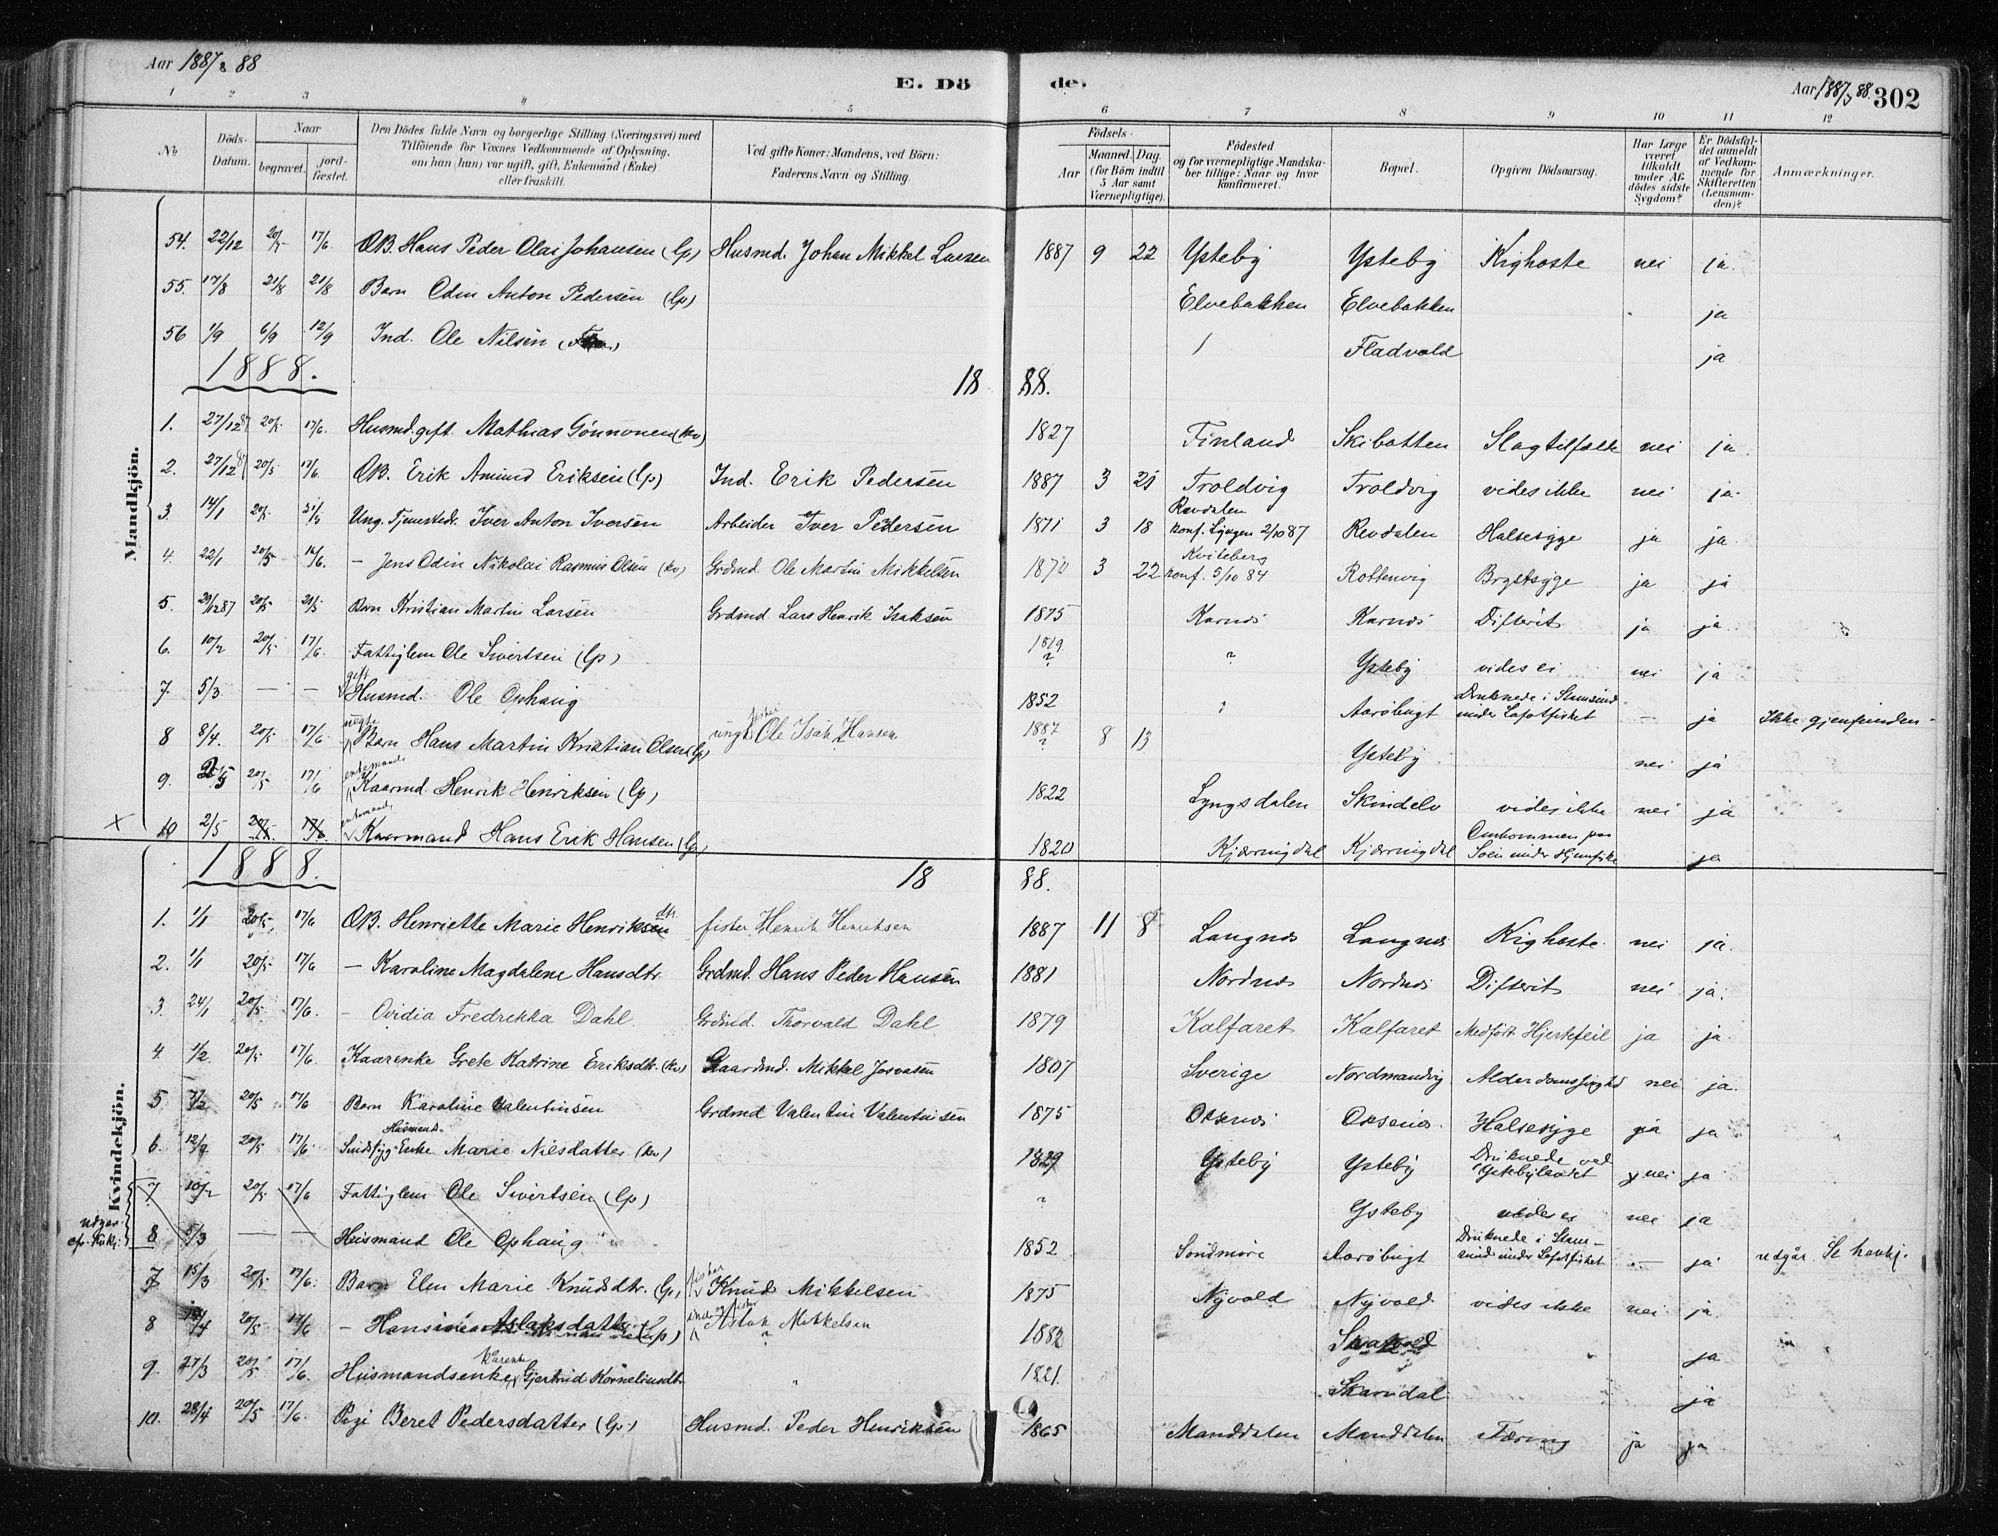 Aar 1887 & 88
E. Dö
de.
Aar 1887 & 88.
302
1 2 3 4 5 6 7 8 9 10 11 12
No
Döds-Datum.
Naar
begravet.
jord-fæstet.
Den Dödes fulde Navn og borgerlige Stilling (Næringsvei) med
Tilföiende for Voxnes Vedkommende af Oplysning,
om han (hun) var ugift, gift, Enkemand (Enke)
eller fraskilt.
Ved gifte Koner: Mandens, ved Börn:
Faderens Navn og Stilling.
Födsels-
Aar
Maaned. Dag.
(for Börn indtil
5 Aar samt
Værnepligtige).
Födested
og for værnepligtige Mandska-
ber tillige: Naar og hvor
konfirmeret.
Bopæl.
Opgiven Dödsaarsag.
Har Læge
været
tilkaldt
under Af-
dödes sidste
Sygdom?
Er Dödsfal-
det anmeldt
af Vedkom-
mende for
Skifteretten
(Lensman-
den)?
Anmærkninger.
Mandkjön.
54. 22/12 20/5 17/6 OB. Hans Peder Olai Johansen (lp) Husmd. Johan Mikkel Larsen 1887 9 22 Ysteby Ysteby Kighoste nei ja.
55. 17/8 21/8 21/8 Barn Odin Anton Pedersen (lp) Elvebakken Elvebakken ja
56 1/9 6/9 12/9 Ind. Ole Nilsen Fladvold ja
1888. 18 88.
1. 27/12 87 20/5 17/6 Husmd. gift. Mathias Gönnonen (kv) 1827 Finland Skibotten Slagtilfælde nei ja.
2. 27/12 87 20/5 17/6 OB. Erik Amund Eriksen (lp) Ind. Erik Pedersen 1887 3 21 Troldvig Troldvig vides ikke nei ja.
3. 14/1 20/5 Ung. Tjenestedr. Iver Anton Iversen Arbeider Iver Pedersen 1871 3 18 Revdalen konf. Lyngen 2/10 87 Revdalen Halsesyge ja ja.
4. 22/1 20/5 16/6. – Jens Odin Nikolai Rasmus Olsen (kv) Grdmd. Ole Martin Mikkelsen 1870 3 22 Kviteberg konf. 5/10 84 Rottenvig Brystsyge ja ja
5. 29/12 87 20/5 21/5 Barn Kristian Martin Larsen Grdmd Lars Henrik Isaksen 1875 Karnes Karnes Difterit ja ja.
6. 10/2 20/5 17/6 Fattiglem Ole Sivertsen (lp) 1819. ? ? Ysteby vides ei nei ja
7. 5/3 — — gift Husmd. Ole Ophaug 1852 Aaröbugt Druknede i Stamsund under Lofotfisket – ja Ikke gjenfunden –
8 8/4. 20/5 17/6 uegte Barn Hans Martin Kristian Olsen (lp) ungk. fisker Ole Isak Hansen 1887 ? 8 13 Ysteby nei ja
9. 2/5 20/5 17/6 enkemand Kaarmd. Henrik Henriksen (lp) 1822 Lyngsdalen Skindelv vides ikke nei ja
× 10 2/5 20/5 17/6 enkemand Kaarmand Hans Erik Hansen (lp) 1820 Kjærringdal Kjærringdal Omkommen paa Söen under Hjemfiske ja
1888. 18 88.
Kvindekjön.
1. 1/1 20/5 17/6 OB. Henriette Marie Henriksen dtr. fisker Henrik Henriksen 1887 11 8 Langnes Langnes Kighoste. nei ja.
2. 1/1 20/5 17/6 – Karoline Magdalene Hansdtr. Grdmd. Hans Peder Hansen 1881 Nordnes Nordnes Difterit nei ja.
3. 24/1 20/5 17/6. – Ovidia Fredrikka Dahl. Grdmd. Thorvald Dahl 1879 Kalfaret Kalfaret Medfödt Hjertefeil ja ja.
4. 1/2. 20/5 17/6. Kaarenke Grete Katrine Eriksdtr. (kv) Kaardmd. Mikkel Josvasen 1807 Sverige Nordmandvig Alderdomssvaghed nei ja.
5 7/2 20/5 17/6 Barn Karoline Valentinsen Grdmd Valentin Valentinsen 1875 Oksnes Oksenes. Halsesyge ja ja
6. 12/2 20/5 17/6. Sindssyg Husmands- Enke Marie Nilsdatter (kv) 1829 Ysteby Ysteby Druknede ved Ystebylandet nei ja
7 10/2 20/5 17/6 Fattiglem Ole Sivertsen (lp) ? Ysteby vides ei nei ja
udgår
8 5/3 — — Husmand Ole Ophaug 1852 Söndmöre Aaröbugt Druknede i Stam-sund under Lofotfisket – ja udgår. Se
7 15/3 20/5 17/6. Barn Elen Marie Knudsdtr. (lp) fisker Knud Mikkelsen 1875 Nyvold Nyvold vides ikke nei ja.
8 20/5 17/6 – Hansine Aslaksdatter (lp) fisker Aslak Mikkelsen ? 1882 Skatvold ja
9. 27/3 20/5 17/6. Husmandsenke Karenke Gjertrud Korneliusdtr. 1821. Skardal ja
10. 28/4 20/5 17/6. Pige Beret Pedersdatter (lp) Husmd. Peder Henriksen 1865 Manddalen Manddalen Tæring ja ja